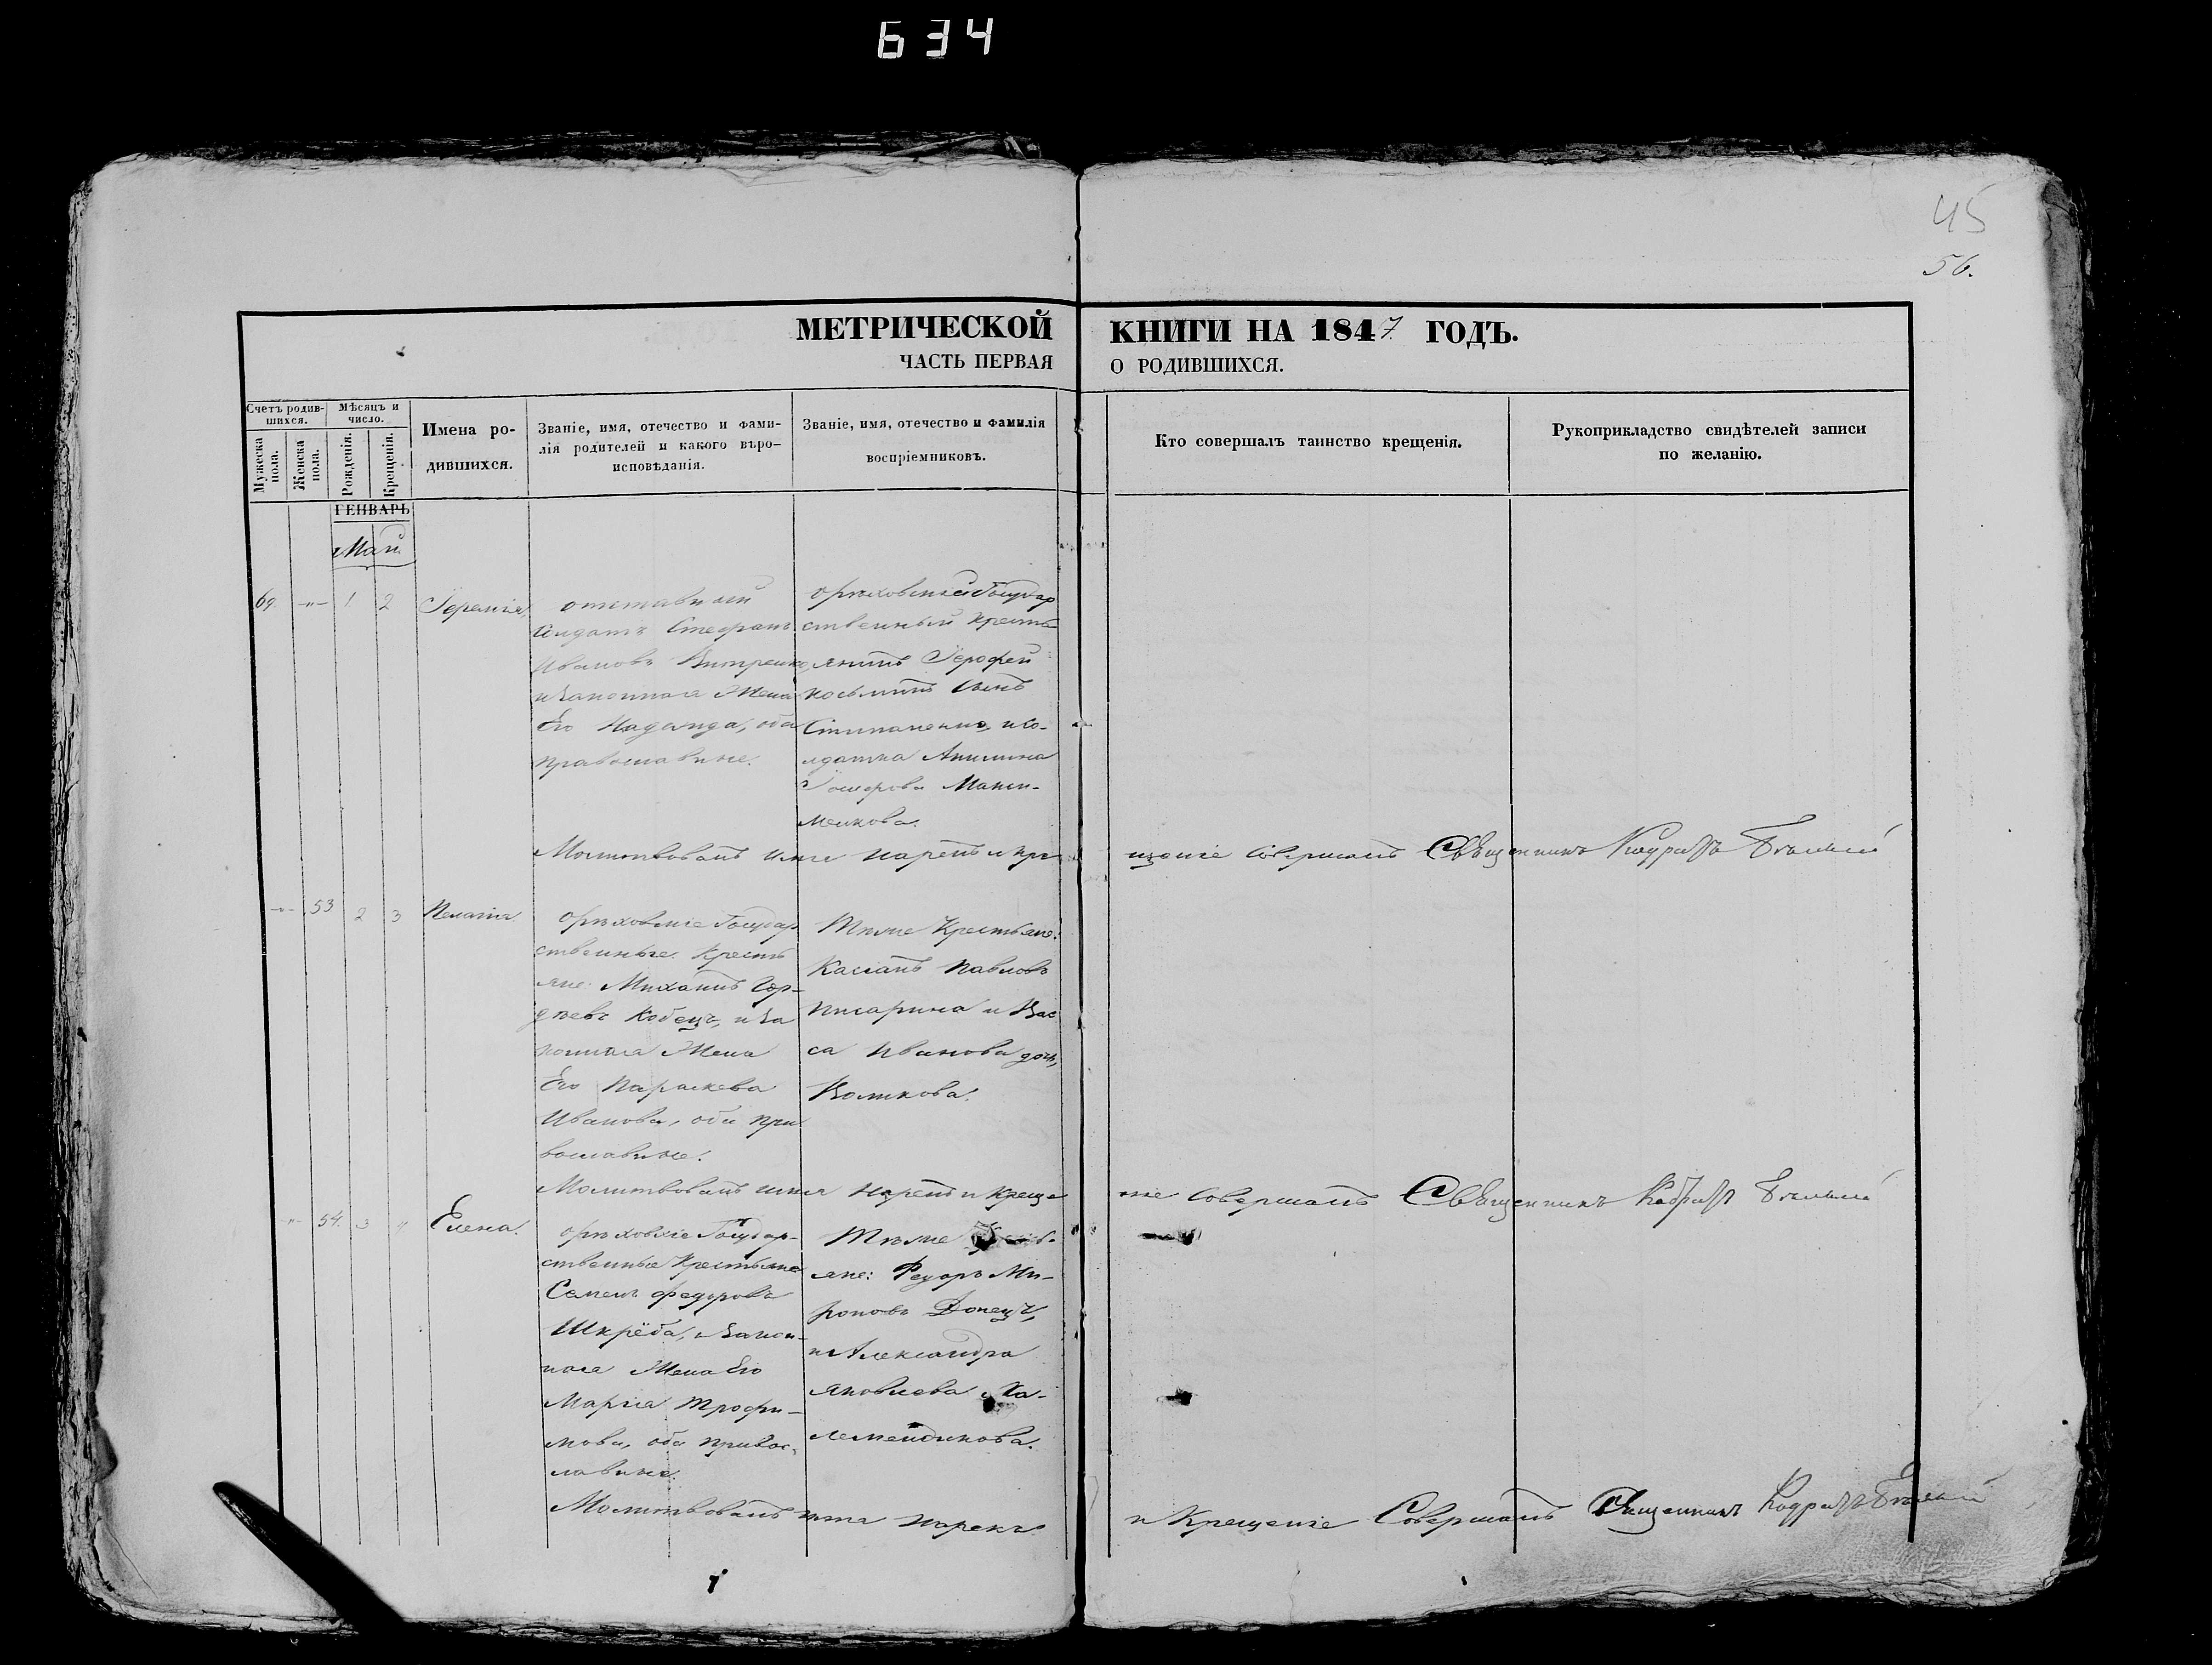 634
45
56.
МЕТРИЧЕСКОЙ КНИГИ НА 1847 ГОДЪ.
ЧАСТЬ ПЕРВАЯ О РОДИВШИХСЯ.
Счетъ родив-
шихся.
Мужеска
пола.
Женска
пола.
Мѣсяцъ и
число.
Рожденія.
Крещенія.
Имена ро-
дившихся.
Званіе, имя, отечество и фами-
лія родителей и какого вѣро-
исповѣданія.
Званіе, имя, отечество и фамилія
воспріемниковъ.
Кто совершалъ таинство крещенія.
Рукоприкладство свидѣтелей записи
по желанію.
ГЕНВАРЬ
Май
69 -"- 1 2 Іеремія
отставный
Солдатъ Стефанъ
Ивановъ
и законная Жена
Его Надежда, оба
православные.
Орѣховскій Государ
ственный Крестья
янинъ Іерофей
Косминъ Сынъ
и Со-
лдатка Акилина
Макси-
менкова.
Молитвовалъ имя нарекъ и кре щеніе совершалъ Священникъ Кодратъ Бѣлый
-"- 53 2 3 Пелагія
Орѣховскіе Государ
ственные Кресть
яне Михаилъ Гор-
дѣевъ Кобецъ, и за
конная Жена
Его Параскева
Иванова, оба пра
вославные.
Тѣже Крестьяне:
Касіанъ Павловъ
Писарина и Вас
са Иванова дочь,
Воликова.
Молитвовалъ имя нарекъ и Креще ніе Совершалъ Священникъ Кодратъ Бѣлый
-"- 54. 3 4 Елена.
Орѣховскіе Государ-
ственные Крестьяне
Семенъ Федоровъ
Шкрёба, и закон-
ная Жена Его
Марія Трофи-
мова, оба правос-
лавные.
Тѣже
яне: Федоръ Ми-
роновъ Донецъ,
и Александра
Яковлева
Молитвовалъ имя нарекъ и Крещеніе Совершалъ Священникъ Кодратъ Бѣлый